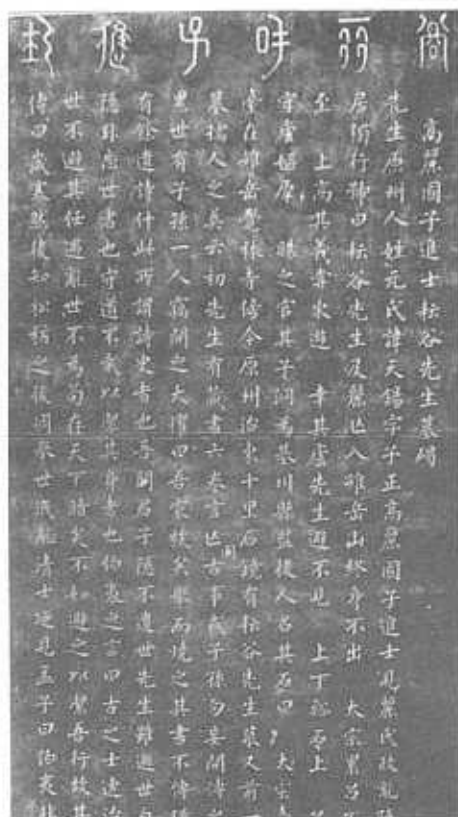 高麗國子進
高麗國子進士耘谷先生墓碣
先生原州人姓元氏諱天錫字子正高麗國子進士見麗氏政亂隱
居術行號曰耘谷先生及麗亡入雉岳山終身不出 太宗累召
至 上高其義嘗東遊 幸其廬先生避不見 上下臨石上
守廬媼厚 賜之官其子泂爲基川縣監後人名其石曰 太宗臺
臺在雉岳覺林寺傍今原州治東十里石鏡有耘谷先生墓又前一
墓孺人之葬云初先生有藏書六卷言亡國古事戒子孫勿妄開傳之
累世有子孫一人竊開之大懼曰吾家族矣擧而燒之其書不傳猶
有餘遺詩什此所謂詩史者也吾聞君子隱不遺世先生雖避世自
隱非忘世者也守道不貳以潔其身者也伯夷之言曰古之士遭治
世不避其任遭亂世不爲苟存天下暗矣不如避之以潔吾行故其
傳曰歲寒然後知松栢之後凋擧世混濁清士廼見孟子曰伯夷非